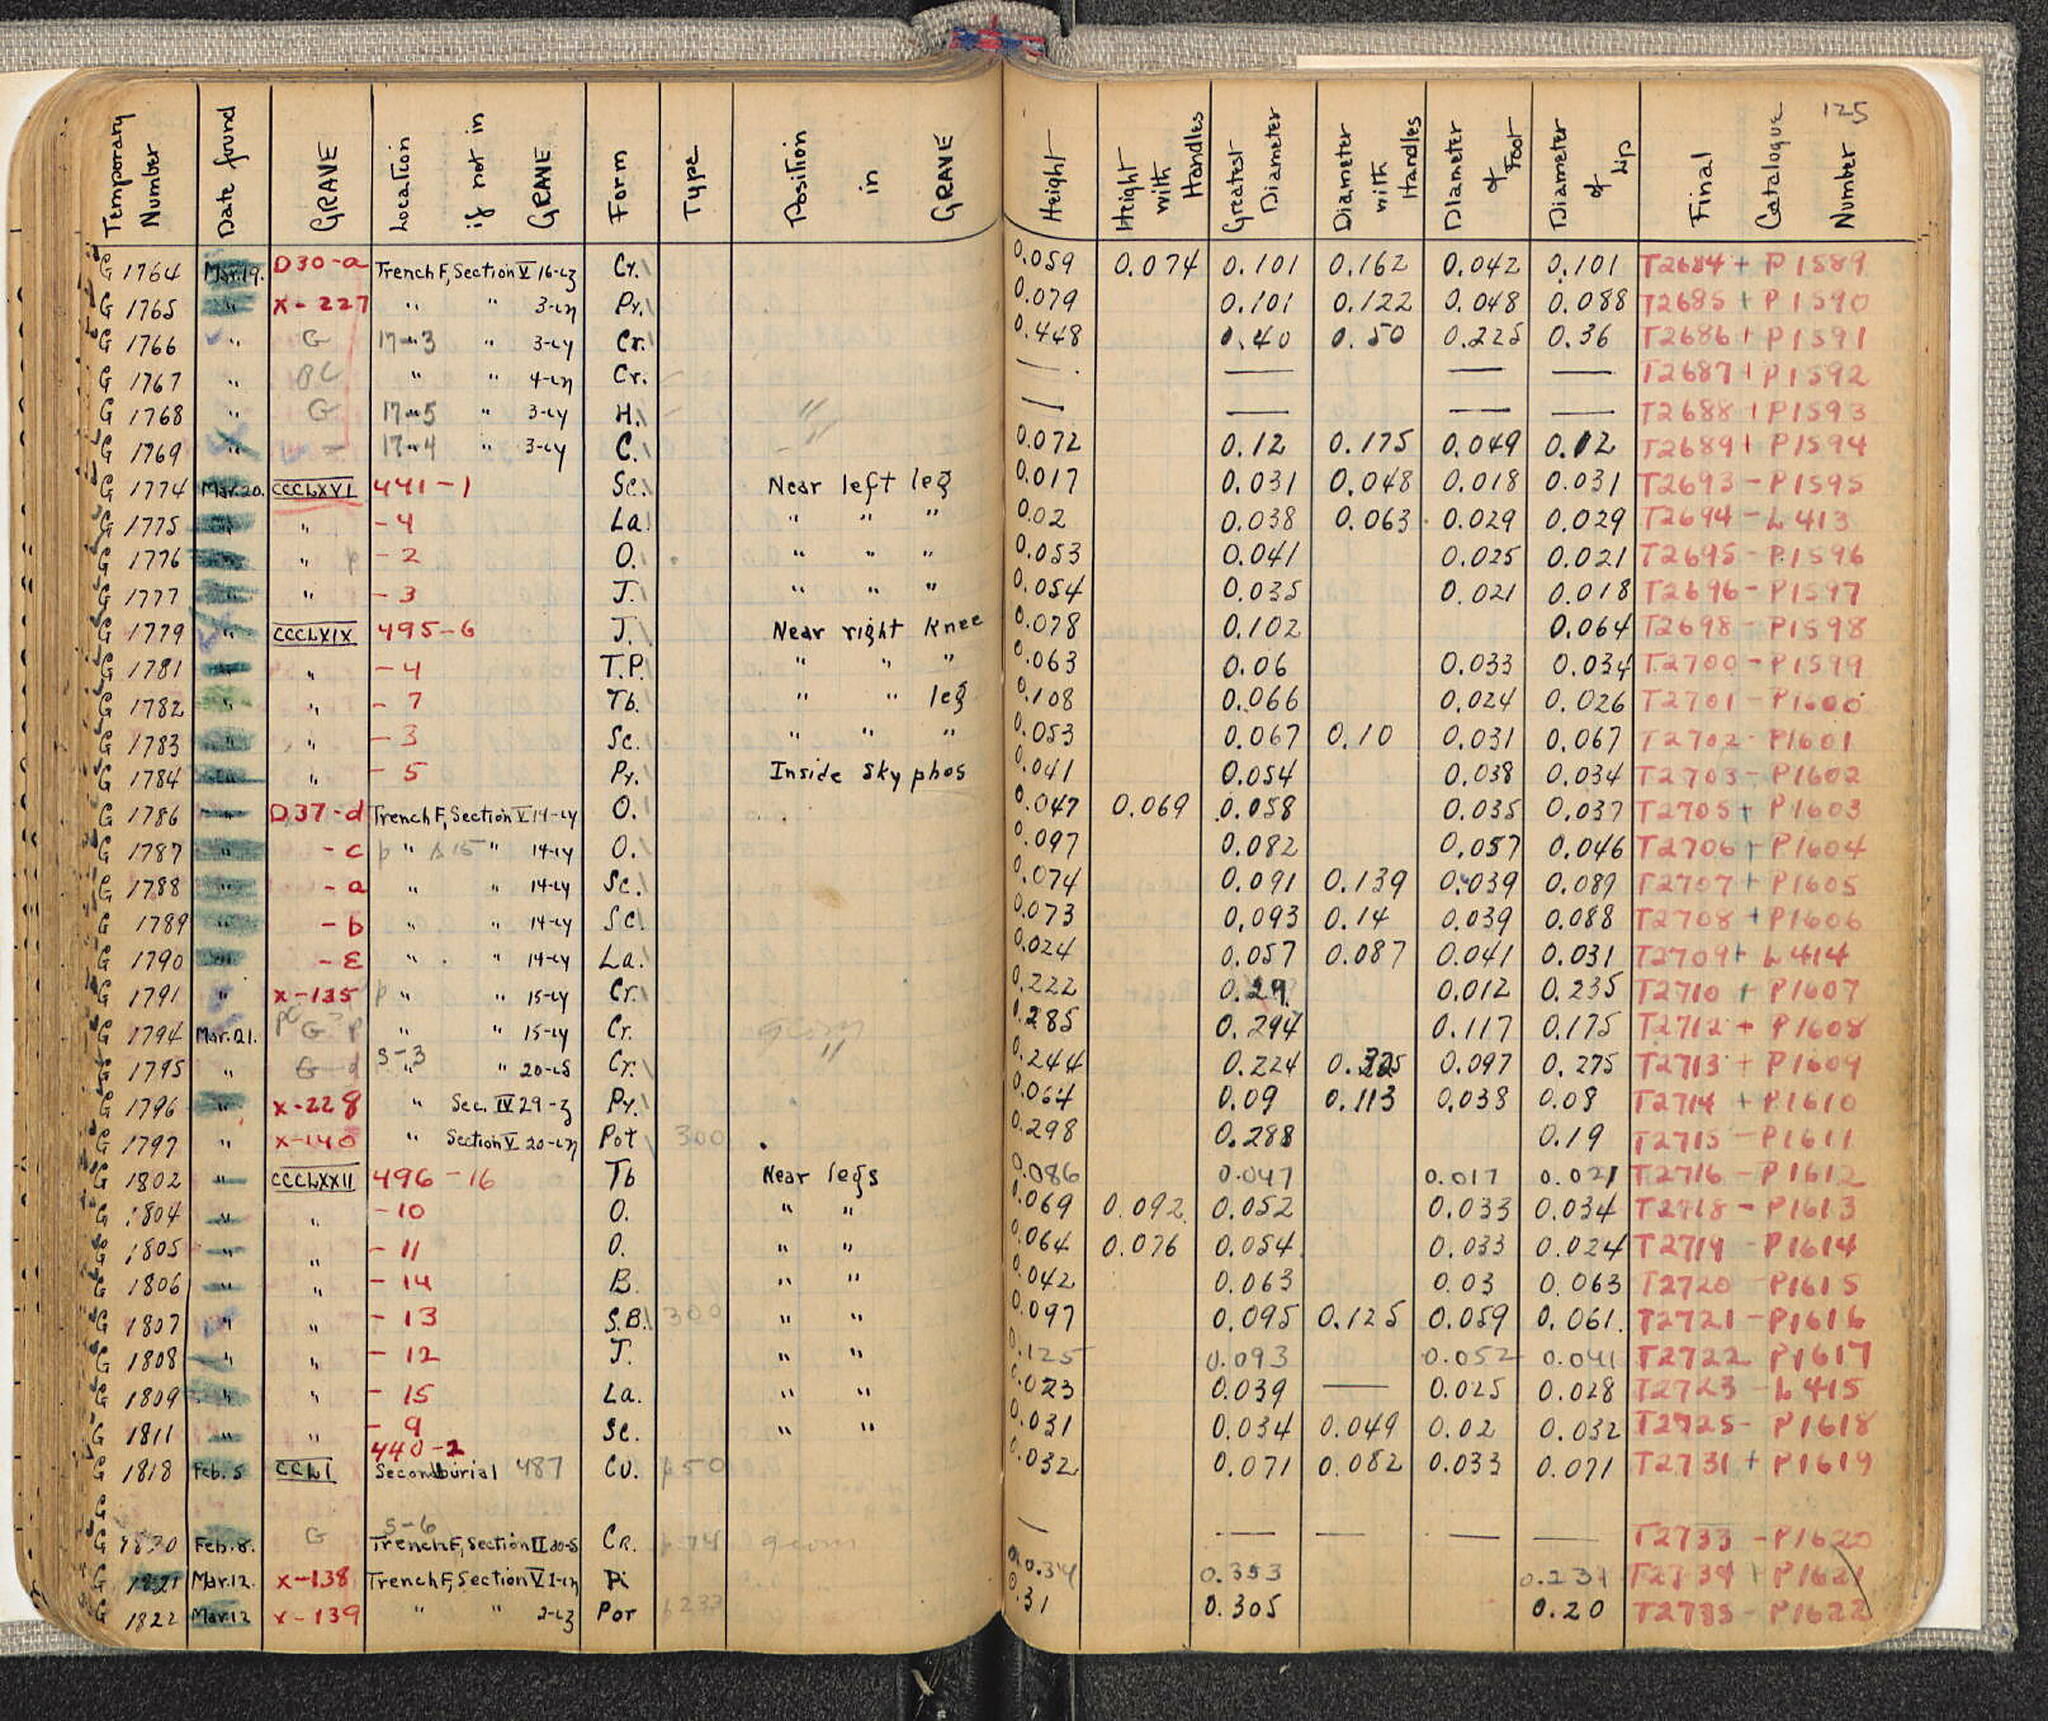 125
Temporary Number | Date found | GRAVE | Location if not in GRAVE | Form | Type | Position in GRAVE | Height | Height with Handles | Greatest Diameter | Diameter with Handles | Diameter of Foot | Diameter of Lip | Final Catalogue Number
G 1764 Mar.19. D30-a Trench F, Section V 16-ιz Cr. 0.059 0.074 0.101 0.162 0.042 0.101 T2684 + P1589
G 1765 " X-227 " " 3-ιη Py. 0.079 0.101 0.122 0.048 0.088 T2685 + P1590
G 1766 " G 17-3 " 3-ιy Cr. 0.448 0.40 0.50 0.225 0.36 T2686 + P1591
G 1767 " " " 4-ιη Cr. — — — — T2687 + P1592
G 1768 " G 17-5 " 3-ιy H. — — — — T2688 + P1593
G 1769 " 17-4 " 3-ιy C. 0.072 0.12 0.175 0.049 0.12 T2689 + P1594
G 1774 Mar.20. CCCLXVI 441-1 Sc. Near left leg 0.017 0.031 0.048 0.018 0.031 T2693 - P1595
G 1775 " " -4 La. " " " 0.02 0.038 0.063 0.029 0.029 T2694 - L413
G 1776 " " -2 O. " " " 0.053 0.041 0.025 0.021 T2695 - P1596
G 1777 " " -3 J. " " " 0.054 0.035 0.021 0.018 T2696 - P1597
G 1779 " CCCLXIX 495-6 J. Near right knee 0.078 0.102 0.064 T2698 - P1598
G 1781 " " -4 T.P. " " " 0.063 0.06 0.033 0.034 T2700 - P1599
G 1782 " " -7 Tb. " " leg 0.108 0.066 0.024 0.026 T2701 - P1600
G 1783 " " -3 Sc. " " " 0.053 0.067 0.10 0.031 0.067 T2702 - P1601
G 1784 " " -5 Py. Inside Skyphos 0.041 0.054 0.038 0.034 T2703 - P1602
G 1786 D37-d Trench F, Section V 14-ιy O. 0.047 0.069 0.058 0.035 0.037 T2705 + P1603
G 1787 " -c " " 14-ιy O. 0.097 0.082 0.057 0.046 T2706 + P1604
G 1788 " -a " " 14-ιy Sc. 0.074 0.091 0.139 0.039 0.089 T2707 + P1605
G 1789 " -b " " 14-ιy Sc. 0.073 0.093 0.14 0.039 0.088 T2708 + P1606
G 1790 " -ε " " 14-ιy La. 0.024 0.057 0.087 0.041 0.031 T2709 + L414
G 1791 " X-135 " " 15-ιy Cr. 0.222 0.29 0.012 0.235 T2710 + P1607
G 1794 Mar.21. G " " 15-ιy Cr. geom 0.285 0.294 0.117 0.175 T2712 + P1608
G 1795 " G 5-3 " " 20-ιδ Cr. " 0.244 0.224 0.325 0.097 0.275 T2713 + P1609
G 1796 " X-228 " Sec. IV 29-z Py. 0.064 0.09 0.113 0.038 0.08 T2714 + P1610
G 1797 " X-140 " Section V 20-ιη Pot 300 0.298 0.288 0.19 T2715 - P1611
G 1802 " CCCLXXII 496-16 Tb Near legs 0.086 0.047 0.017 0.021 T2716 - P1612
G 1804 " " -10 O. " " 0.069 0.092 0.052 0.033 0.034 T2718 - P1613
G 1805 " " -11 O. " " 0.064 0.076 0.054 0.033 0.024 T2719 - P1614
G 1806 " " -14 B. " " 0.042 0.063 0.03 0.063 T2720 P1615
G 1807 " " -13 S.B. 300 " " 0.097 0.095 0.125 0.059 0.061 T2721 - P1616
G 1808 " " -12 J. " " 0.125 0.093 0.052 0.041 T2722 P1617
G 1809 " " -15 La. " " 0.023 0.039 — 0.025 0.028 T2723 - L415
G 1811 " " -9 Sc. " " 0.031 0.034 0.049 0.02 0.032 T2725 - P1618
440-2
G 1818 Feb.5 CCLI Second burial 487 CU. 650 0.032 0.071 0.082 0.033 0.071 T2731 + P1619
G
G 1830 Feb.8. G 5-6 Trench F, Section II 20-δ CR. geom — — — — — T2733 - P1620
G 1821 Mar.12. X-138 Trench F, Section V 1-ιη Pi 0.34 0.353 T2734 + P1621
G 1822 Mar.12 X-139 " " 2-ιz Por 0.31 0.305 0.20 T2735 - P1622